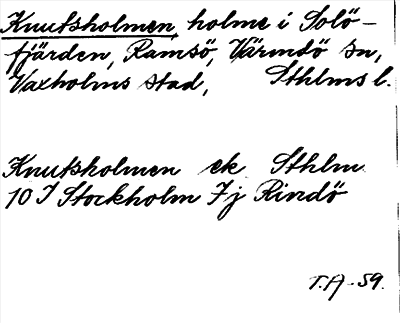 Knutsholmen, holme i Solö-
fjärden, Ramsö, Värmdö sn,
Vaxholms stad, Sthlms l.
Knutsholmen ek Sthlm
10 I Stockholm 7j Rindö
T.A -59.